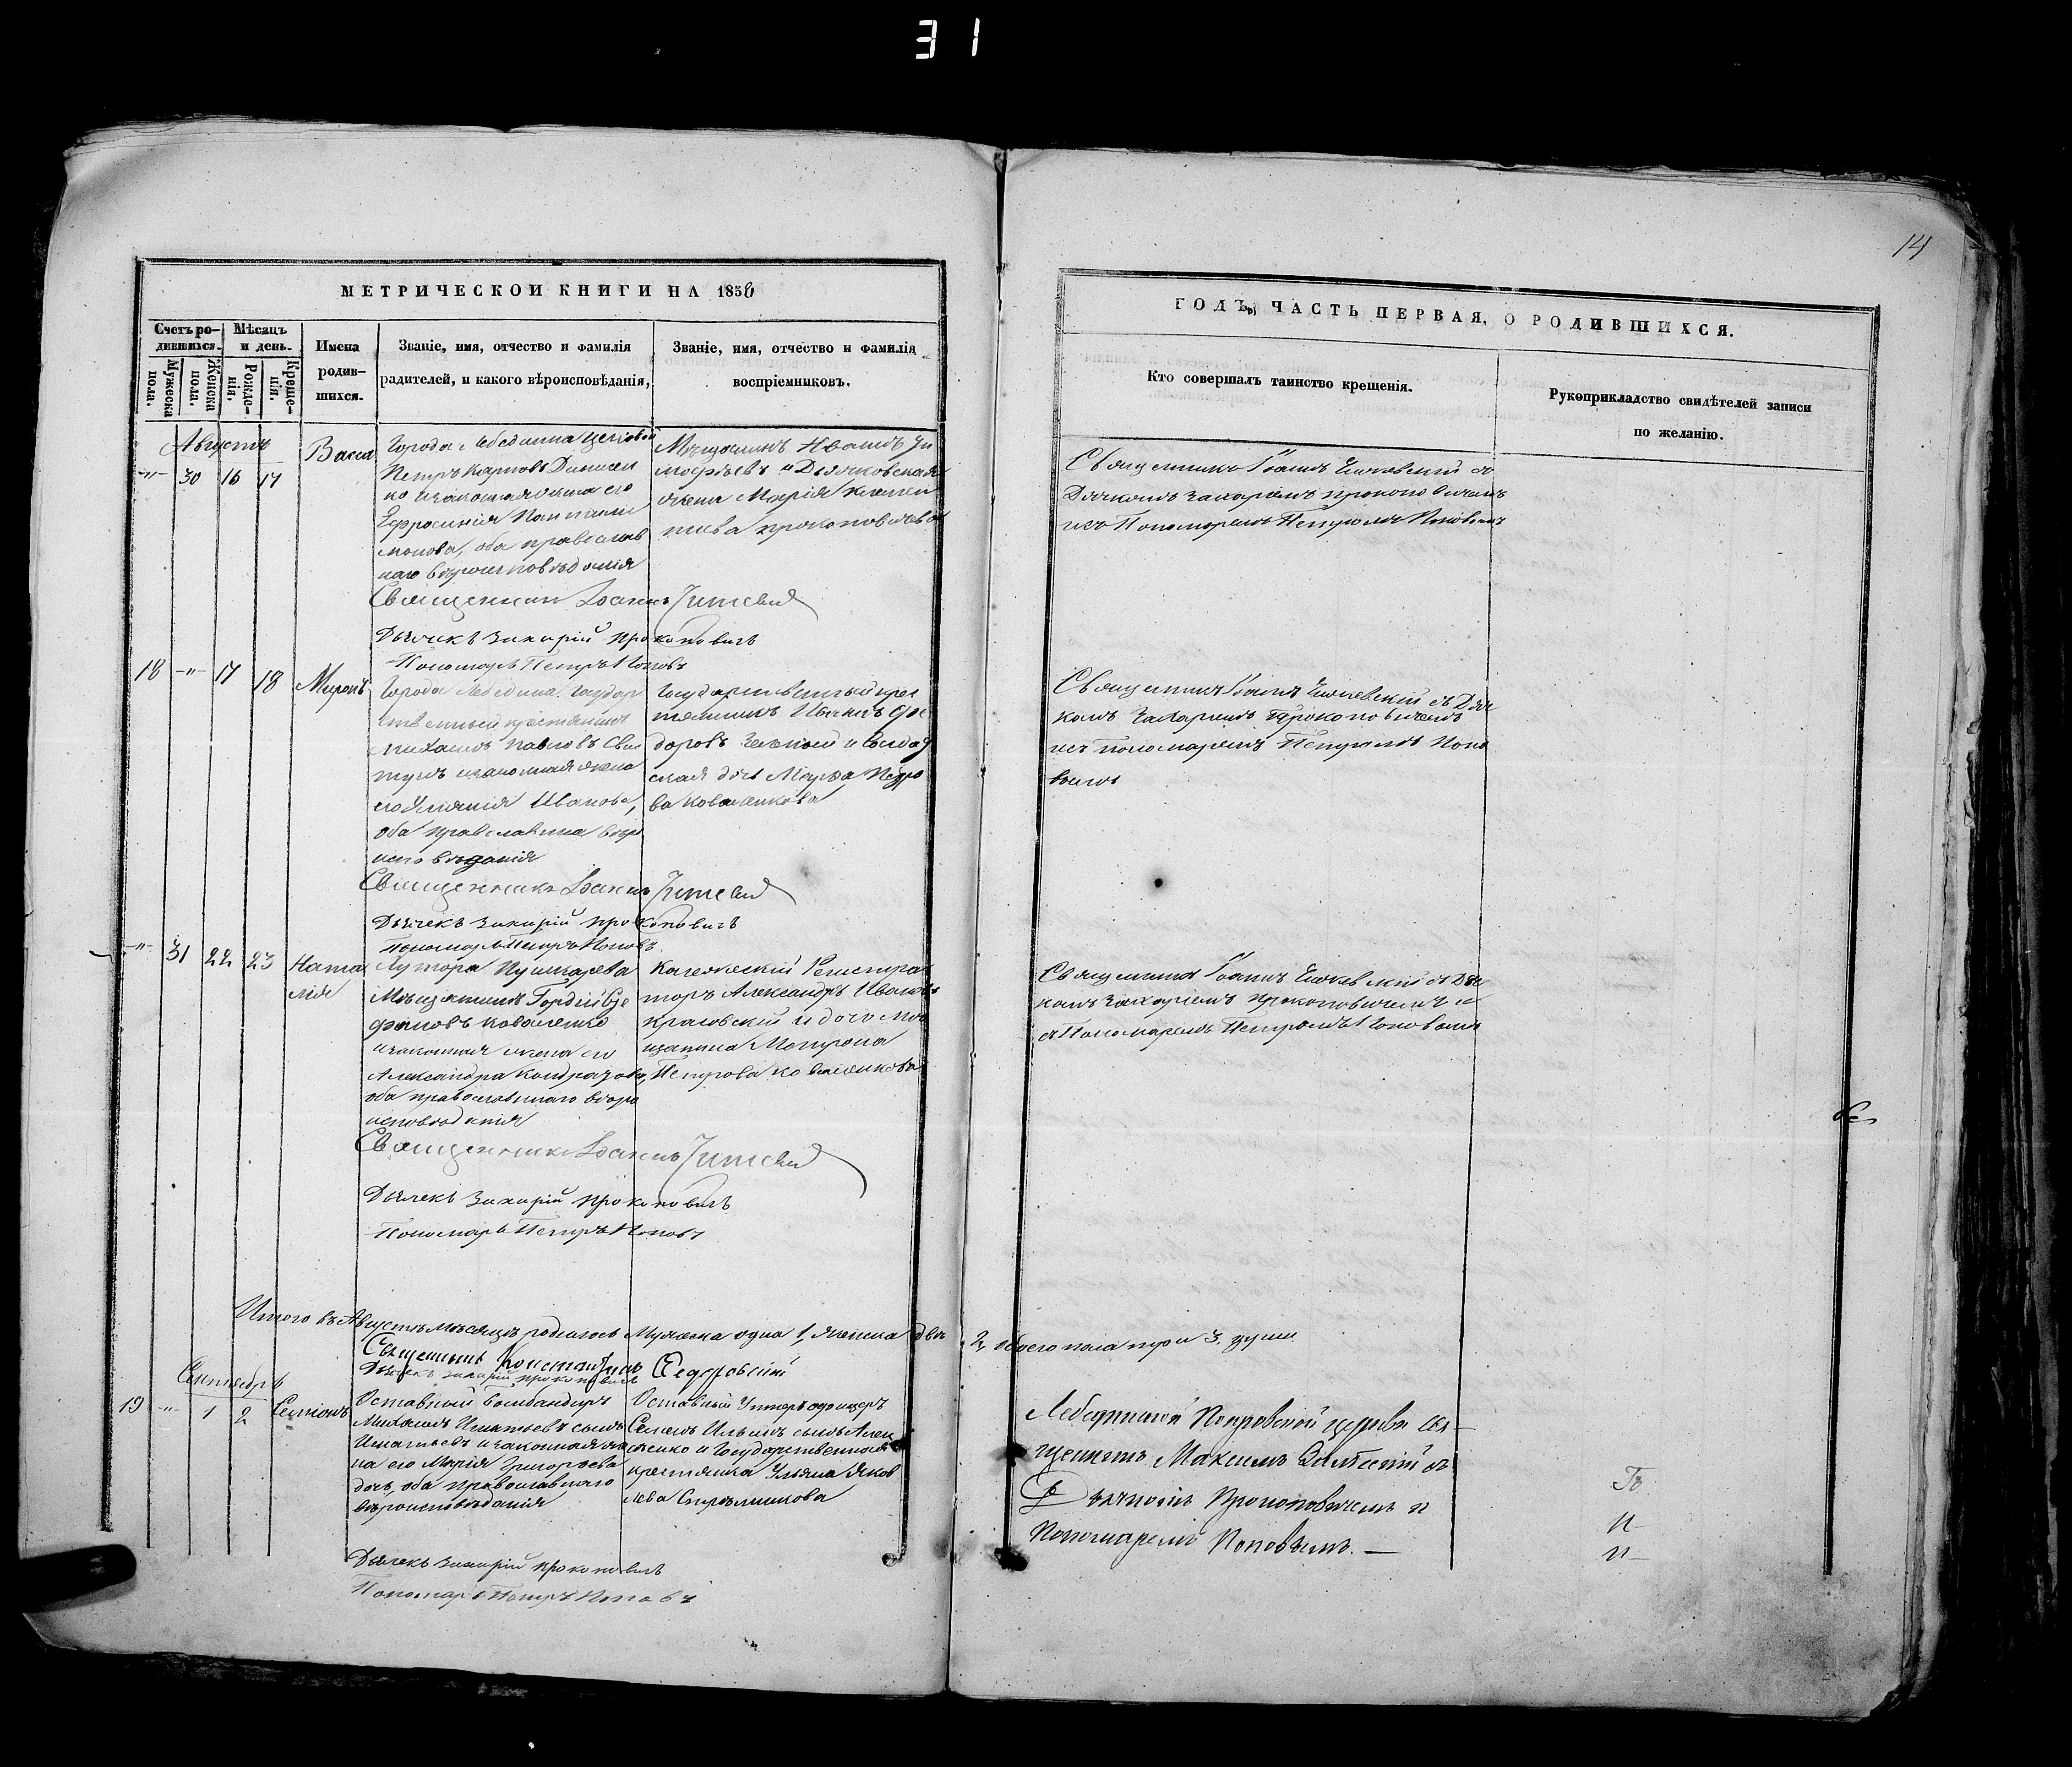 31
14
МЕТРИЧЕСКОЙ КНИГИ НА 1858
ГОДЪ, ЧАСТЬ ПЕРВАЯ, О РОДИВШИХСЯ.
Счетъ ро-
дившихся.
Мужеска
пола.
Женска
пола.
Мѣсяцъ
и день.
Рожде-
нія.
Креще-
нія.
Имена
родив-
шихся.
Званіе, имя, отчество и фамилія
радителей, и какого вѣроисповѣданія,
Званіе, имя, отчество и фамилія
воспріемниковъ.
Кто совершалъ таинство крещенія.
Рукоприкладство свидѣтелей записи
по желанію.
Августъ
30 16 17
Васса
Города Лебедина
Петръ Карповъ Денисен
ко изаконная жена его
Ефросинія Пантелей
монова, оба православ
наго вѣроисповѣданія
Мещанинъ Иванъ
мофѣевъ и Дьячковская
жена Марія
Прокоповичева
Священникъ Іоаннъ
Дьячкомъ Захаріемъ Прокоповичемъ
исъ Пономаремъ Петромъ Поповымъ
Священникъ Іоаннъ
Дьячекъ Захарій Прокоповичъ
Пономарь Петръ Поповъ
18 17 18
Миронъ
Города Лебедина Государ
ственный крестьянинъ
Михаилъ Павловъ
изаконная жена
его Иванова,
оба православнаго вѣро
исповѣданія
Государственный крес
тьянинъ Иванъ Фео
доровъ и Солдат
ская дочь Марѳа Петро
ва Коваленкова
Священникъ Іоаннъ съ Дьяч
комъ Захаріемъ Прокоповичемъ
исъ пономаремъ Петромъ Попо
вымъ
Священникъ Іоаннъ
Дьячекъ Захарій Прокоповичъ
Пономарь Петръ Поповъ
31 22 23
Ната
лія
Хутора Пушкарева
Мѣщанинъ Гордій Сте
фановъ Коваленко
изаконная жена его
Александра Кондратова,
оба православнаго вѣро
исповѣданія
Коллежскій Регистра
торъ Александръ Ивановъ
Красовскій и дочь Мѣ
щанина Матрона
Петрова Коваленкова
Священникъ Іоаннъ съ Дьяч
комъ Захаріемъ Прокоповичемъ и
съ Пономаремъ Петромъ Поповымъ
Священникъ Іоаннъ
Дьячекъ Захарій Прокоповичъ
Пономарь Петръ Поповъ
Итого въ Августѣ мѣсяцѣ родилось Мужеска одна 1, Женска двѣ
2, обоего пола три 3 души
Священникъ Константинъ Ѳедоровскій
Дьячекъ Захарій Прокоповичъ
Сентябрь
19 1 2
Семіонъ
Оставный Бомбандиръ
Михаилъ Игнатьевъ сынъ
Игнатьевъ изаконная же
на его Марія Григорьева
дочь, оба православнаго
вѣроисповѣданія
Оставной Унтеръ офицеръ
Семенъ Ильинъ сынъ Алек
сѣенко и Государственная
крестьянка Ульяна Яков
лева Стрѣльникова
Лебединской Покровской церкви Свя-
щенникъ Максимъ съ
Дьячкомъ Прокоповичемъ и
Пономаремъ Поповымъ.
Дьячекъ Захарій Прокоповичъ
Пономарь Петръ Поповъ